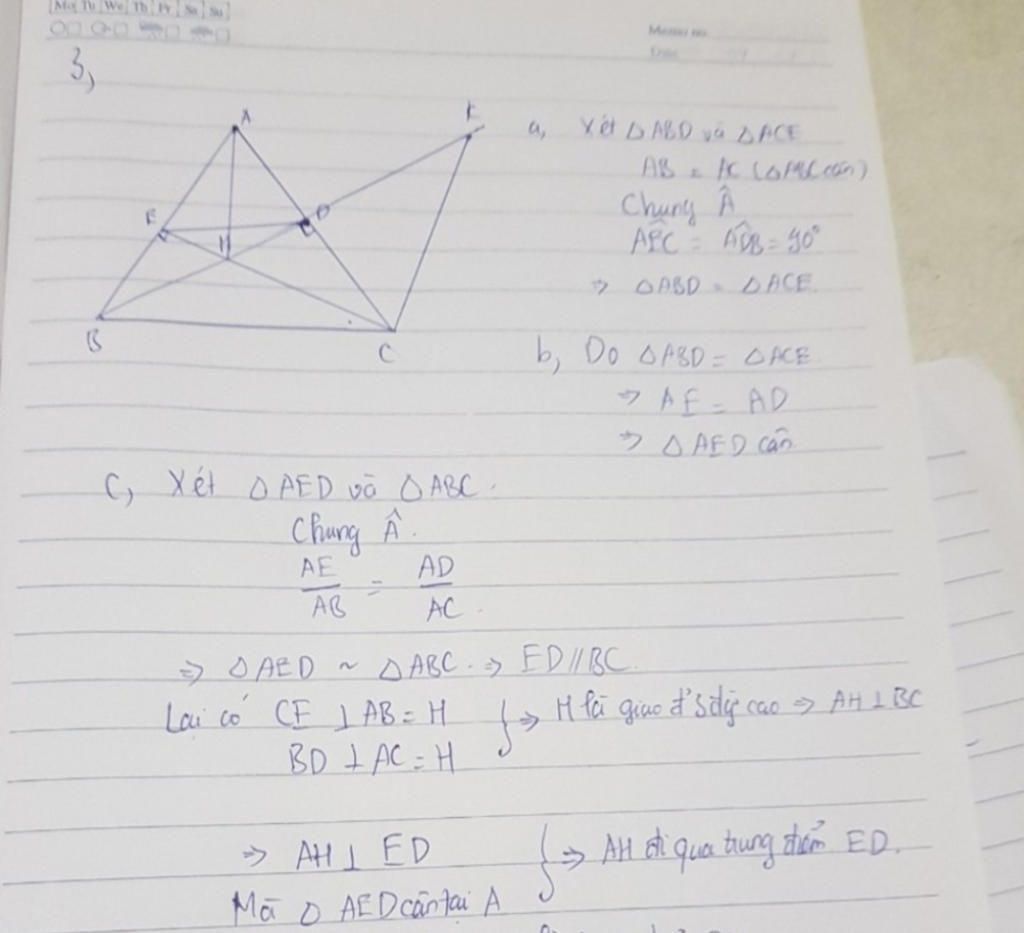 Mo Tu We Th Fr Sa Su
Memo no.
Date
3,
A
K
E
D
H
B
C
a, Xét △ABD và △ACE
AB = AC (△ABC cân)
Chung Â
AEC = ADB = 90°
⇒ △ABD = △ACE.
b, Do △ABD = △ACE.
⇒ AE = AD
⇒ △AED cân
C, Xét △AED và △ABC.
Chung Â.
AE/AB = AD/AC.
⇒ △AED ~ △ABC. ⇒ ED//BC.
Lại có CE ⊥ AB = H
BD ⊥ AC = H
} ⇒ H là giao đ' 3 đg cao ⇒ AH ⊥ BC
⇒ AH ⊥ ED
Mà △ AED cân tại A
} ⇒ AH đi qua trung điểm ED.